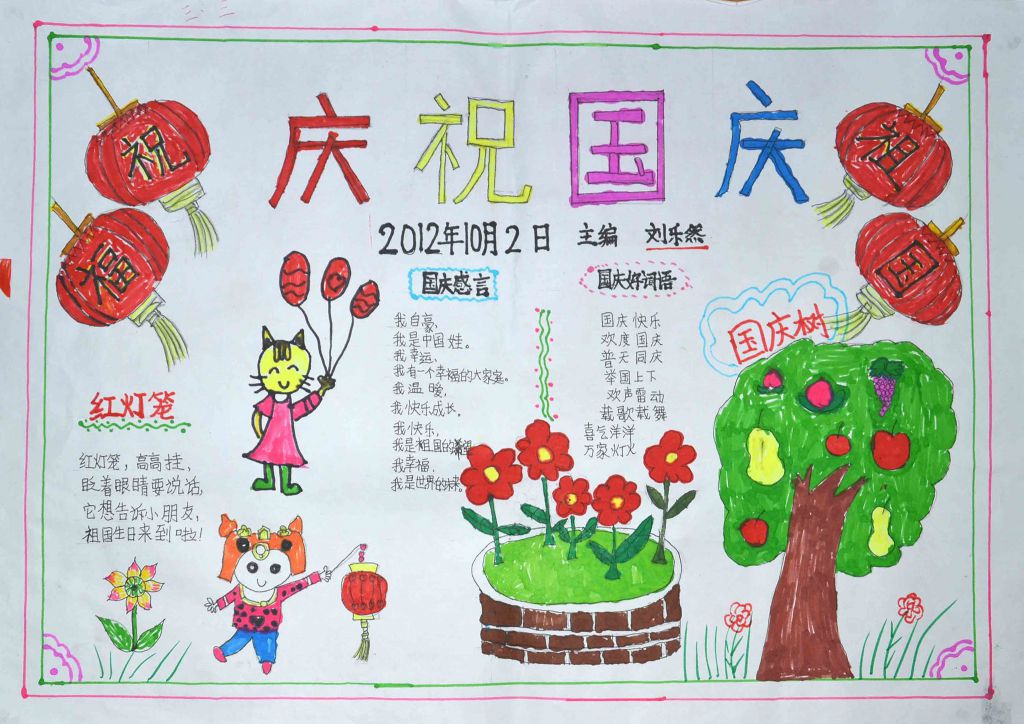 庆祝国庆
祝
福
祖
国
2012年10月2日 主编 刘乐然
国庆感言
我自豪，
我是中国娃。
我幸运，
我有一个幸福的大家庭。
我温暖，
我快乐成长。
我快乐，
我是祖国的希望
我幸福，
我是世界的未来。
国庆好词语
国庆快乐
欢度国庆
普天同庆
举国上下
欢声雷动
载歌载舞
喜气洋洋
万家灯火
国庆树
红灯笼
红灯笼，高高挂，
眨着眼睛要说话，
它想告诉小朋友，
祖国生日来到啦！